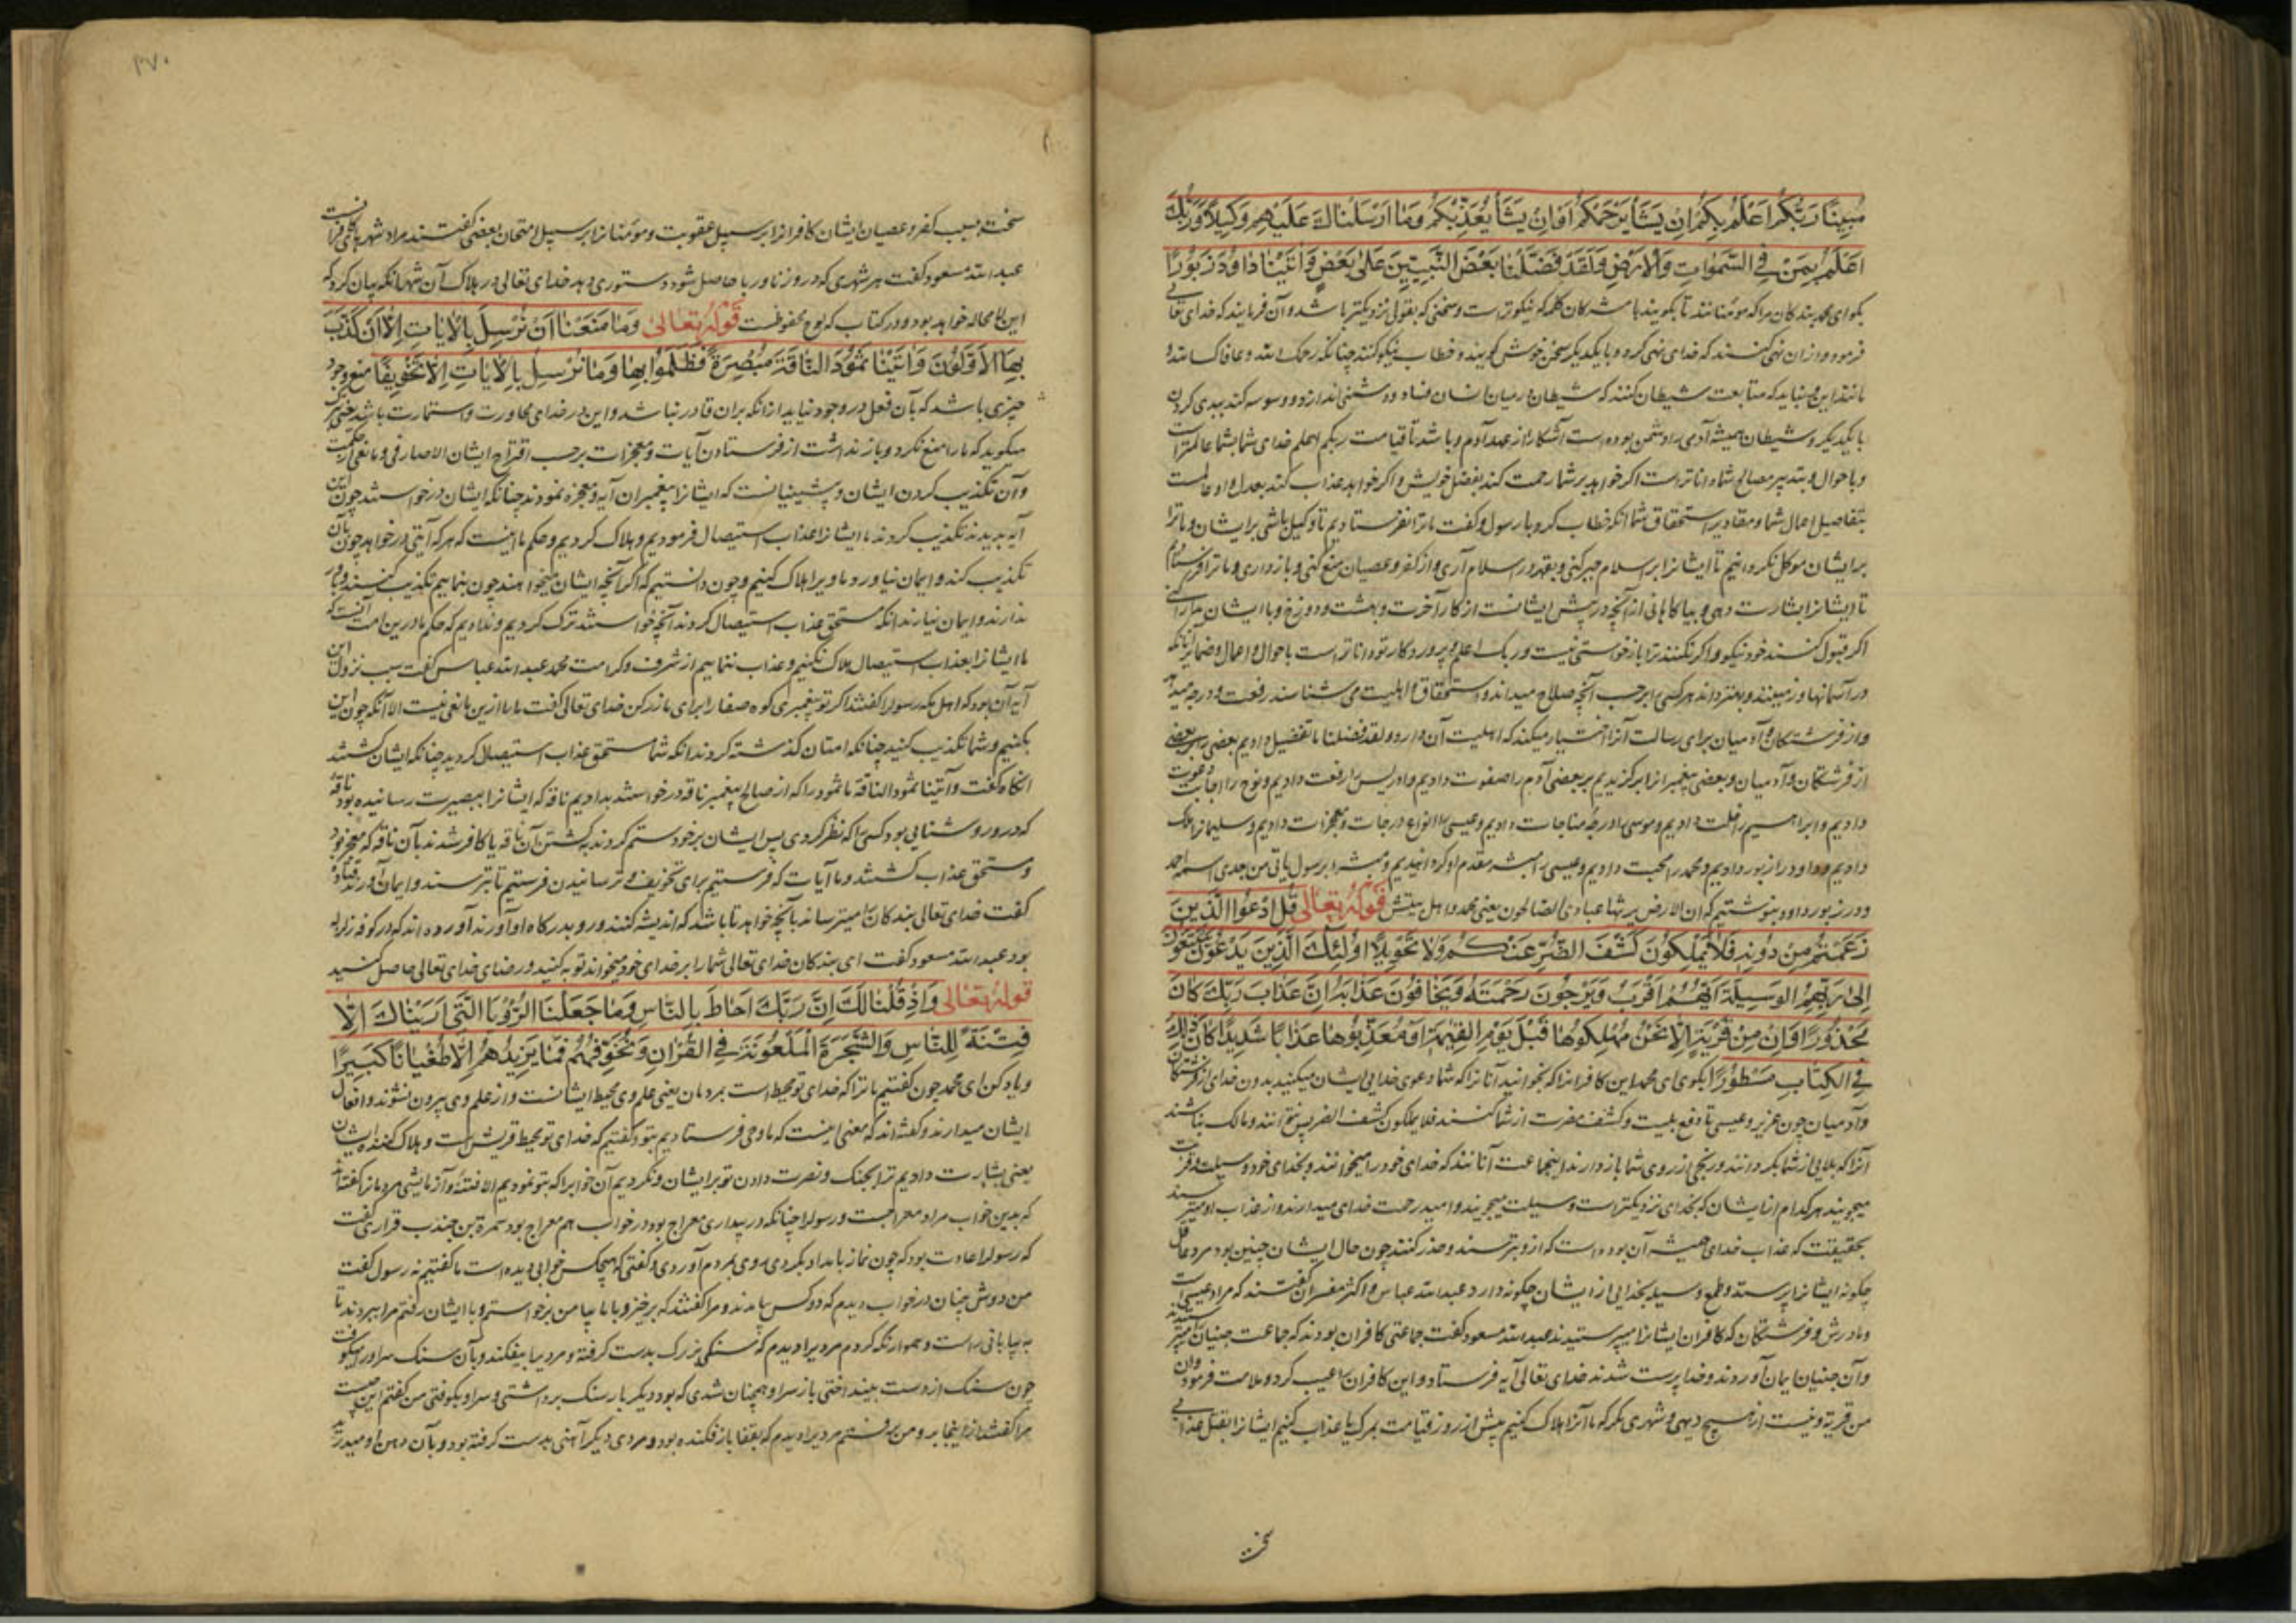 مُبِينًا رَبُّكُمْ اَعْلَمُ بِكُمْ اِنْ يَشَأْ يَرْحَمْكُمْ اَوْ اِنْ يَشَأْ يُعَذِّبْكُمْ وَمَا اَرْسَلْنَاكَ عَلَيْهِمْ وَكِيلًا وَرَبُّكَ
اَعْلَمُ بِمَنْ فِي السَّمٰوَاتِ وَالْاَرْضِ وَلَقَدْ فَضَّلْنَا بَعْضَ النَّبِيّٖنَ عَلٰى بَعْضٍ وَاٰتَيْنَا دَاوُدَ زَبُورًا
بکو ای محمد بندکان مرا که مومنانند تا بکویند با مشرکان کلمه که نیکوترست و سخنی که بقول نزدیکتر باشد و آن فرمایند که خدای تعالی
فرمود و از آن نهی کنند که خدای نهی کرد و با یکدیگر سخن خوش کویند و خطاب نیکو کنند چنانکه رحمک الله و عافاک الله
مانند این و نباید که متابعت شیطان کنند که شیطان در میان انسان فساد و دشمنی اندازد و وسوسه کند ببدی کردن
با یکدیگر و شیطان همیشه آدمی را دشمن بوده است آشکارا از عهد آدم و باشد تا قیامت ربکم اعلم خدای شما بشما عالمترست
و باحوال و بتدبیر مصالح شما داناترست اکر خواهد بر شما رحمت کند بفضل خویش و اکر خواهد عذاب کند بعدل و او عالمست
بتفاصیل اعمال شما و مقادیر استحقاق شما آنکه خطاب کرد با رسول و کفت ما ترا نفرستادیم تا وکیل باشی بر ایشان و ما ترا
بر ایشان موکل نکردانیم تا ایشانرا بر اسلام جبر کنی و بقهر در اسلام آری و از کفر و عصیان منع کنی و باز داری و ما ترا فرستادیم
تا ایشانرا بشارت دهی و بیاکاهانی از آنچه در پیش ایشانست از کار آخرت و بهشت و دوزخ و با ایشان
اکر قبول کنند خود نیکو و اکر نکنند ترا بازخواستی نیست و ربک اعلم و پروردکار تو داناترست باحوال و اعمال و ضمایر آنانکه
در آسمانها و زمینند و بهتر داند هر کسی را برحسب آنچه صلاح میداند و استحقاق و اهلیت می شناسد رفعت و درجه میدهد
و از فرشتکان و آدمیان برای رسالت آنرا اختیار میکند که اهلیت آن دارد ولقد فضلنا ما تفضیل دادیم بعضی را بر بعضی
از فرشتکان و آدمیان و بعضی پیغمبرانرا برکزیدیم بر بعضی آدم را صفوت دادیم و ادریس را رفعت دادیم و نوح را اجابت دعوت
دادیم و ابراهیم را خلت دادیم و موسی را درجه مناجات دادیم و عیسی را انواع درجات و معجزات دادیم و سلیمانرا ملک
دادیم و داود را زبور دادیم و محمد را محبت دادیم و عیسی را مبشر مقدم او کردانیدیم و مبشرا برسول یاتی من بعدی اسمه احمد
و در زبور داود بنوشتیم که ان الارض یرثها عبادی الصالحون یعنی محمد و اهل بیتش قَوْلُهُ تَعَالٰى قُلِ ادْعُوا الَّذٖينَ
زَعَمْتُمْ مِنْ دُونِهٖ فَلَا يَمْلِكُونَ كَشْفَ الضُّرِّ عَنْكُمْ وَلَا تَحْوِيلًا اُولٰئِكَ الَّذٖينَ يَدْعُونَ يَبْتَغُونَ
اِلٰى رَبِّهِمُ الْوَسِيلَةَ اَيُّهُمْ اَقْرَبُ وَيَرْجُونَ رَحْمَتَهُ وَيَخَافُونَ عَذَابَهُ اِنَّ عَذَابَ رَبِّكَ كَانَ
مَحْذُورًا وَاِنْ مِنْ قَرْيَةٍ اِلَّا نَحْنُ مُهْلِكُوهَا قَبْلَ يَوْمِ الْقِيٰمَةِ اَوْ مُعَذِّبُوهَا عَذَابًا شَدِيدًا كَانَ ذٰلِكَ
فِي الْكِتَابِ مَسْطُورًا بکوی ای محمد این کافرانرا که بخوانید آنانرا که شما دعوی خدایی ایشان میکنید بدون خدای از فرشتکان
و آدمیان چون عزیر و عیسی تا دفع بلیت و کشف مضرت از شما کنند فلا یملکون کشف الضر پس نتوانند و مالک نباشند
آنرا که بلایی از شما بکردانند و رنجی از روی شما باز دارند اینجماعت آنانند که خدای خود را میخوانند و بخدای خود وسیلت و قربت
میجویند هر کدام از ایشان که بخدای نزدیکترست وسیلت میجویند و امید رحمت خدای میدارند و از عذاب او میترسند
بحقیقت که عذاب خدای همیشه آن بوده است که ازو بترسند و حذر کنند چون حال ایشان چنین بود مرد عاقل
چکونه ایشانرا پرستد و طمع وسیله بخدایی از ایشان چکونه دارد عبدالله عباس و اکثر مفسران کفتند که مراد عیسی است
و مادرش و فرشتکان که کافران ایشانرا میپرستیدند عبدالله مسعود کفت جماعتی کافران بودند که جماعت جنیان را میپرستیدند
و آن جنیان ایمان آوردند و خدا پرست شدند خدای تعالی آیه فرستاد و این کافران را عیب کرد و ملامت فرمود و ان
من قریة و نیست از هیچ دیهی و شهری مکر که ما آنرا هلاک کنیم پیش از روز قیامت بمرک یا عذاب کنیم ایشانرا بقتل عذابی
سخت
۳۷۰
سخت بسبب کفر و عصیان ایشان کافرانرا بر سبیل عقوبت و مومنانرا بر سبیل امتحان بعضی کفتند مراد شهرهای کافرانست
عبدالله مسعود کفت هر شهری که در و زنا و ربا حاصل شود دستوری دهد خدای تعالی در هلاک آن شهر آنکه بیان کرد که
این لامحاله خواهد بود و در کتاب که لوح محفوظست قَوْلُهُ تَعَالٰى وَمَا مَنَعَنَا اَنْ نُرْسِلَ بِالْاٰيَاتِ اِلَّا اَنْ كَذَّبَ
بِهَا الْاَوَّلُونَ وَاٰتَيْنَا ثَمُودَ النَّاقَةَ مُبْصِرَةً فَظَلَمُوا بِهَا وَمَا نُرْسِلُ بِالْاٰيَاتِ اِلَّا تَخْوِيفًا منع وجود
چیزی باشد که با آن فعل در وجود نیاید از آنکه بر آن قادر نباشد و این در خدای
میکوید که ما را منع نکرد و باز نداشت از فرستادن آیات و معجزات برحسب اقتراح ایشان الا صارفی و مانعی از حکمت
و آن تکذیب کردن ایشان و پیشینیانست که ایشانرا پیغمبران آیه و معجزه نمودند چنانکه ایشان درخواستند چون این
آیه بدیدند تکذیب کردند ما ایشانرا عذاب استیصال فرمودیم و هلاک کردیم و حکم ما اینست که هر که آیتی درخواهد چون بآن
تکذیب کند و ایمان نیاورد ما ویرا هلاک کنیم و چون دانستیم که اکر آنچه ایشان میخواهند چون بنماییم تکذیب کنند و باور
ندارند و ایمان نیارند آنکه مستحق عذاب استیصال کردند آنچه خواستند ترک کردیم و ندادیم که حکم ما درین امت آنست که
ما ایشانرا بعذاب استیصال هلاک نکنیم و عذاب ننماییم از شرف و کرامت محمد عبدالله عباس کفت سبب نزول این
آیه آن بود که اهل مکه رسول را کفتند اکر تو پیغمبری کوه صفا را برای ما زر کن خدای تعالی کفت ما را ازین مانعی نیست الا آنکه چون این
بکنیم و شما تکذیب کنید چنانکه امتان کذشته کردند آنکه شما مستحق عذاب استیصال کردید چنانکه ایشان کشتند
آنکاه کفت و آتینا ثمود الناقة ما ثمود را که از صالح پیغمبر ناقه درخواستند بدادیم ناقه که ایشانرا ببصیرت رسانیده بود ناقه
که در و روشنایی بود کسی را که نظر کردی پس ایشان بر خود ستم کردند بکشتن آن ناقه یا کافر شدند بآن ناقه که معجزه بود
و مستحق عذاب کشتند و ما آیات که فرستیم برای تخویف و ترسانیدن فرستیم تا بترسند و ایمان آورند قتاده
کفت خدای تعالی بندکان را میترساند بآنچه خواهد تا باشد که اندیشه کنند و رو بدرکاه او آورند آورده اند که در کوفه زلزله
بود عبدالله مسعود کفت ای بندکان خدای تعالی شما را بر خدای خود میخواند توبه کنید و رضای خدای تعالی حاصل کنید
قَوْلُهُ تَعَالٰى وَاِذْ قُلْنَا لَكَ اِنَّ رَبَّكَ اَحَاطَ بِالنَّاسِ وَمَا جَعَلْنَا الرُّؤْيَا الَّتٖي اَرَيْنَاكَ اِلَّا
فِتْنَةً لِلنَّاسِ وَالشَّجَرَةَ الْمَلْعُونَةَ فِي الْقُرْاٰنِ وَنُخَوِّفُهُمْ فَمَا يَزِيدُهُمْ اِلَّا طُغْيَانًا كَبِيرًا
و یاد کن ای محمد چون کفتیم ما ترا که خدای تو محیط است بمردمان یعنی علم وی محیط ایشانست و از علم وی بیرون نشوند و افعال
ایشان میدارند و کفته اند که معنی اینست که ما وحی فرستادیم بتو و کفتیم که خدای تو محیط قریش است و هلاک کننده ایشان
یعنی بشارت دادیم ترا بجنک و نصرت دادن تو بر ایشان و نکردیم آن خوابرا که بتو نمودیم الا فتنه و آزمایش مردمانرا کفتند
که بدین خواب مراد معراجست و رسول را چنانکه در بیداری معراج بود در خواب هم معراج بود سمرة بن جندب کفت
که رسول را عادت بود که چون نماز بامداد بکردی روی بمردم آوردی و کفتی که هیچکس خوابی دیده است ما کفتیم نه رسول کفت
من دوش چنان در خواب دیدم که دو کس بیامدند و مرا کفتند که برخیز و با ما بیا من برخواستم و با ایشان رفتم مرا ببردند تا
به بیابانی راست و هموار نکه کردم مردیرا دیدم که سنکی بزرک بدست کرفته و مردیرا بیفکند و بآن سنک سر او را میکوفت
چون سنک از دست بینداختی باز سر او همچنان شدی که بود دیکر بار سنک برداشتی و سر او بکوفتی من کفتم این چیست
مرا کفتند از اینجا برو من برفتم مردیرا دیدم که بقفا باز فکنده بود و مردی دیکر آهنی بدست کرفته بود و بآن دهن او میدرید